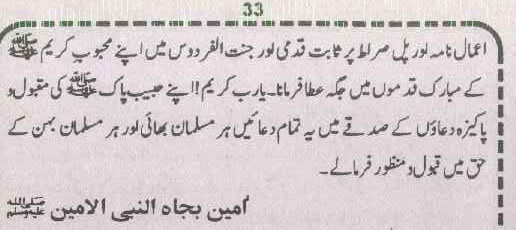 33
اعمال نامہ اور پل صراط پر ثابت قدمی اور جنت الفردوس میں اپنے محبوب کریم ﷺ
کے مبارک قدموں میں جگہ عطا فرمانا۔ یارب کریم! اپنے حبیب پاک ﷺ کی مقبول و
پاکیزہ دعاؤں کے صدقے میں یہ تمام دعائیں ہر مسلمان بھائی اور ہر مسلمان بہن کے
حق میں قبول و منظور فرمالے۔
امین بجاہ النبی الامین ﷺ